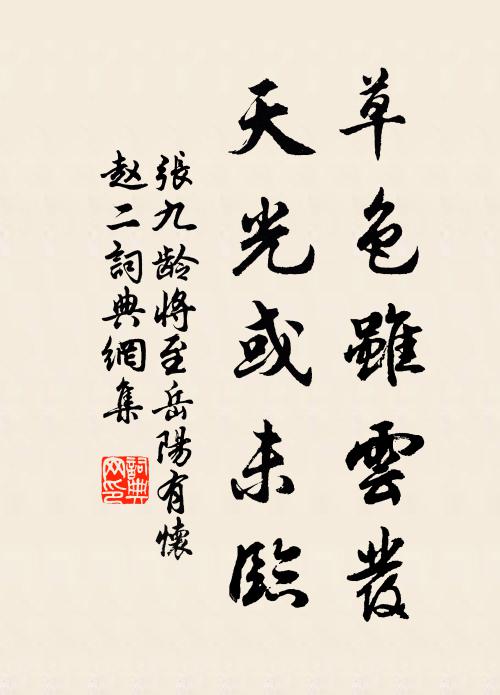 草色雖雲發
天光或未臨
張九龄將至岳陽有懷
赵二詞典網集
詞典
网印